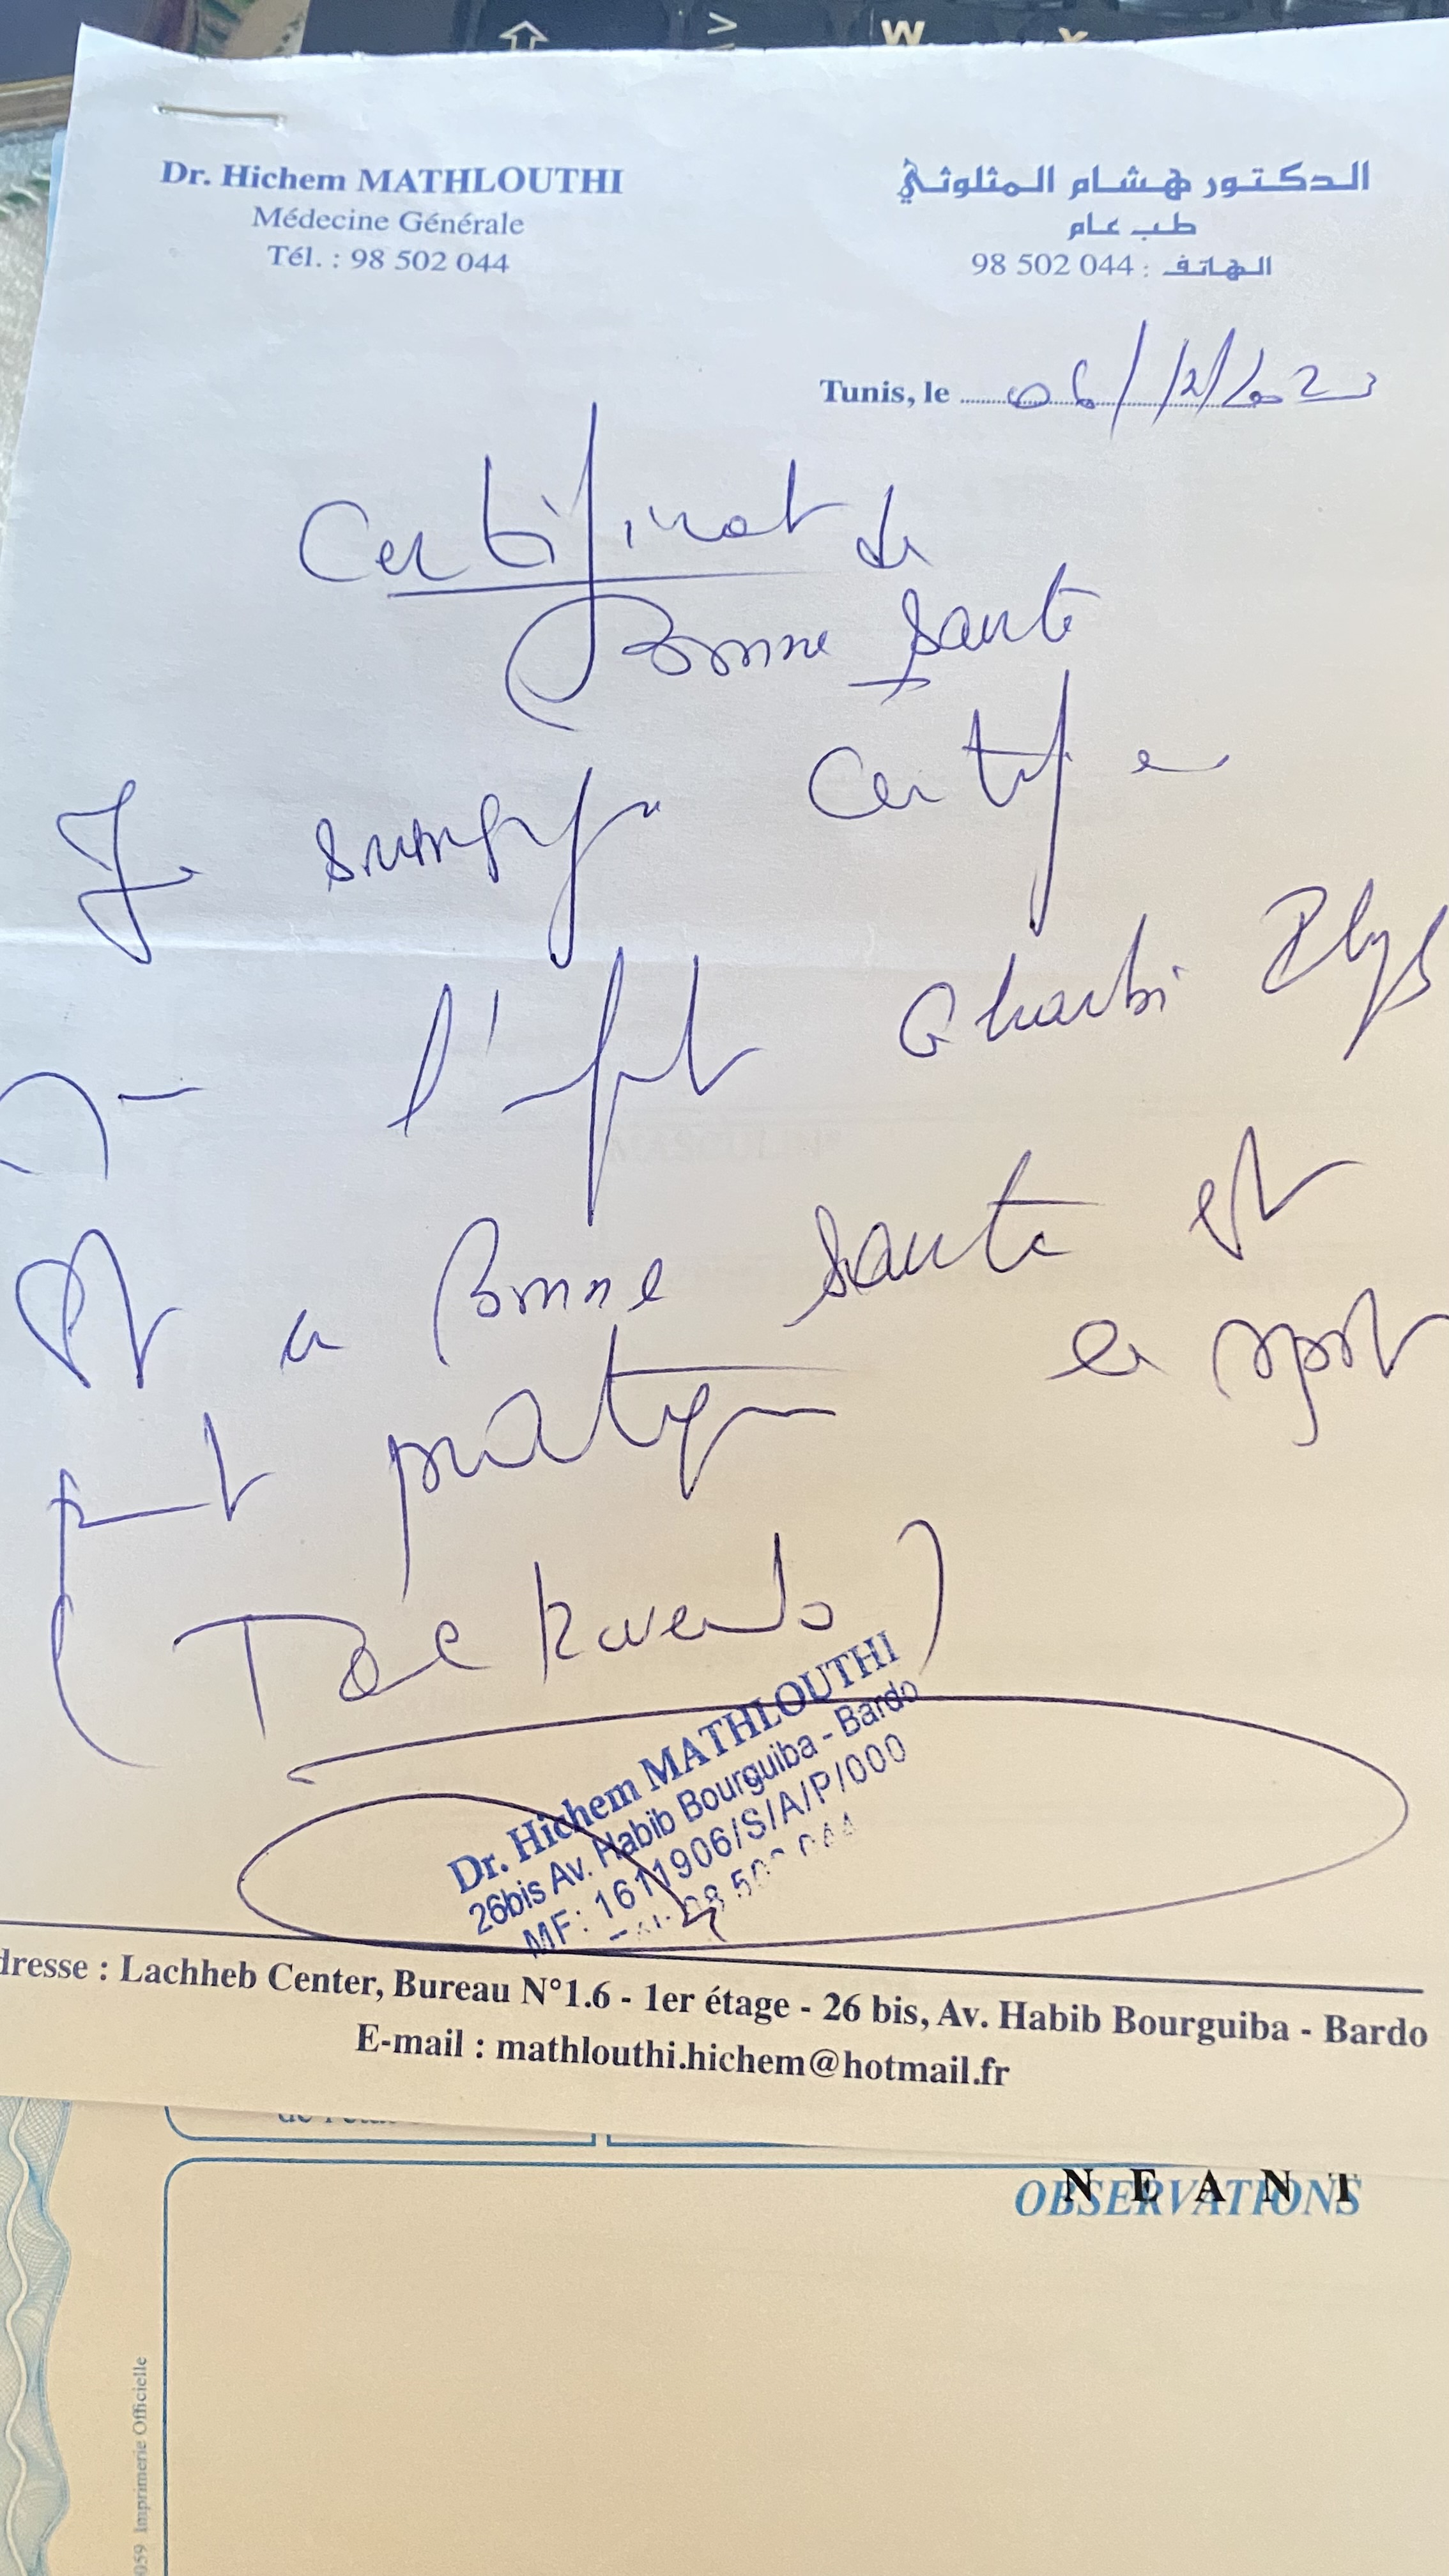 W
Dr. Hichem MATHLOUTHI
Médecine Générale
Tél. : 98 502 044
الدكتور هشام المثلوثي
طب عام
الهاتف : 044 502 98
Tunis, le 06/12/2023
Certificat de
Bonne Santé
Je soussigné certifie
l'enfant Gharbi
est en Bonne santé et
peut pratiquer le sport
(Taekwendo)
Dr. Hichem MATHLOUTHI
26bis Av. Habib Bourguiba - Bardo
MF: 1611906/S/A/P/000
dresse : Lachheb Center, Bureau N°1.6 - 1er étage - 26 bis, Av. Habib Bourguiba - Bardo
E-mail : mathlouthi.hichem@hotmail.fr
NEANT
OBSERVATIONS
059 Imprimerie Officielle